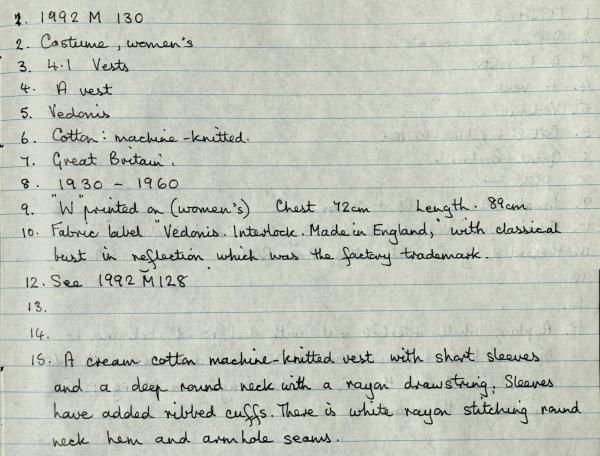 1. 1992 M 130
2. Costume, women's
3. 4.1 Vests
4. A vest
5. Vedonis
6. Cotton: machine-knitted.
7. Great Britain.
8. 1930 - 1960
9. "W" printed on (women's) Chest 72cm Length. 89cm
10. Fabric label "Vedonis. Interlock. Made in England, with classical
bust in reflection which was the factory trademark.
12. See 1992 M 128
13.
14.
15. A cream cotton machine-knitted vest with short sleeves
and a deep round neck with a rayon drawstring; Sleeves
have added ribbed cuffs. There is white rayon stitching round
neck hem and armhole seams.